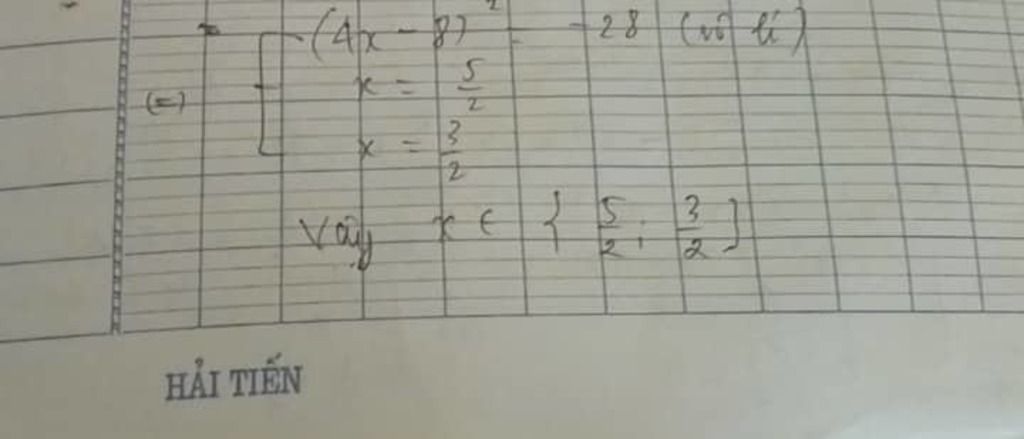 (4x - 8)² = -28 (vô lí)
(=) x = 5/2
x = 3/2
Vậy x ∈ { 5/2 ; 3/2 ]
HẢI TIẾN